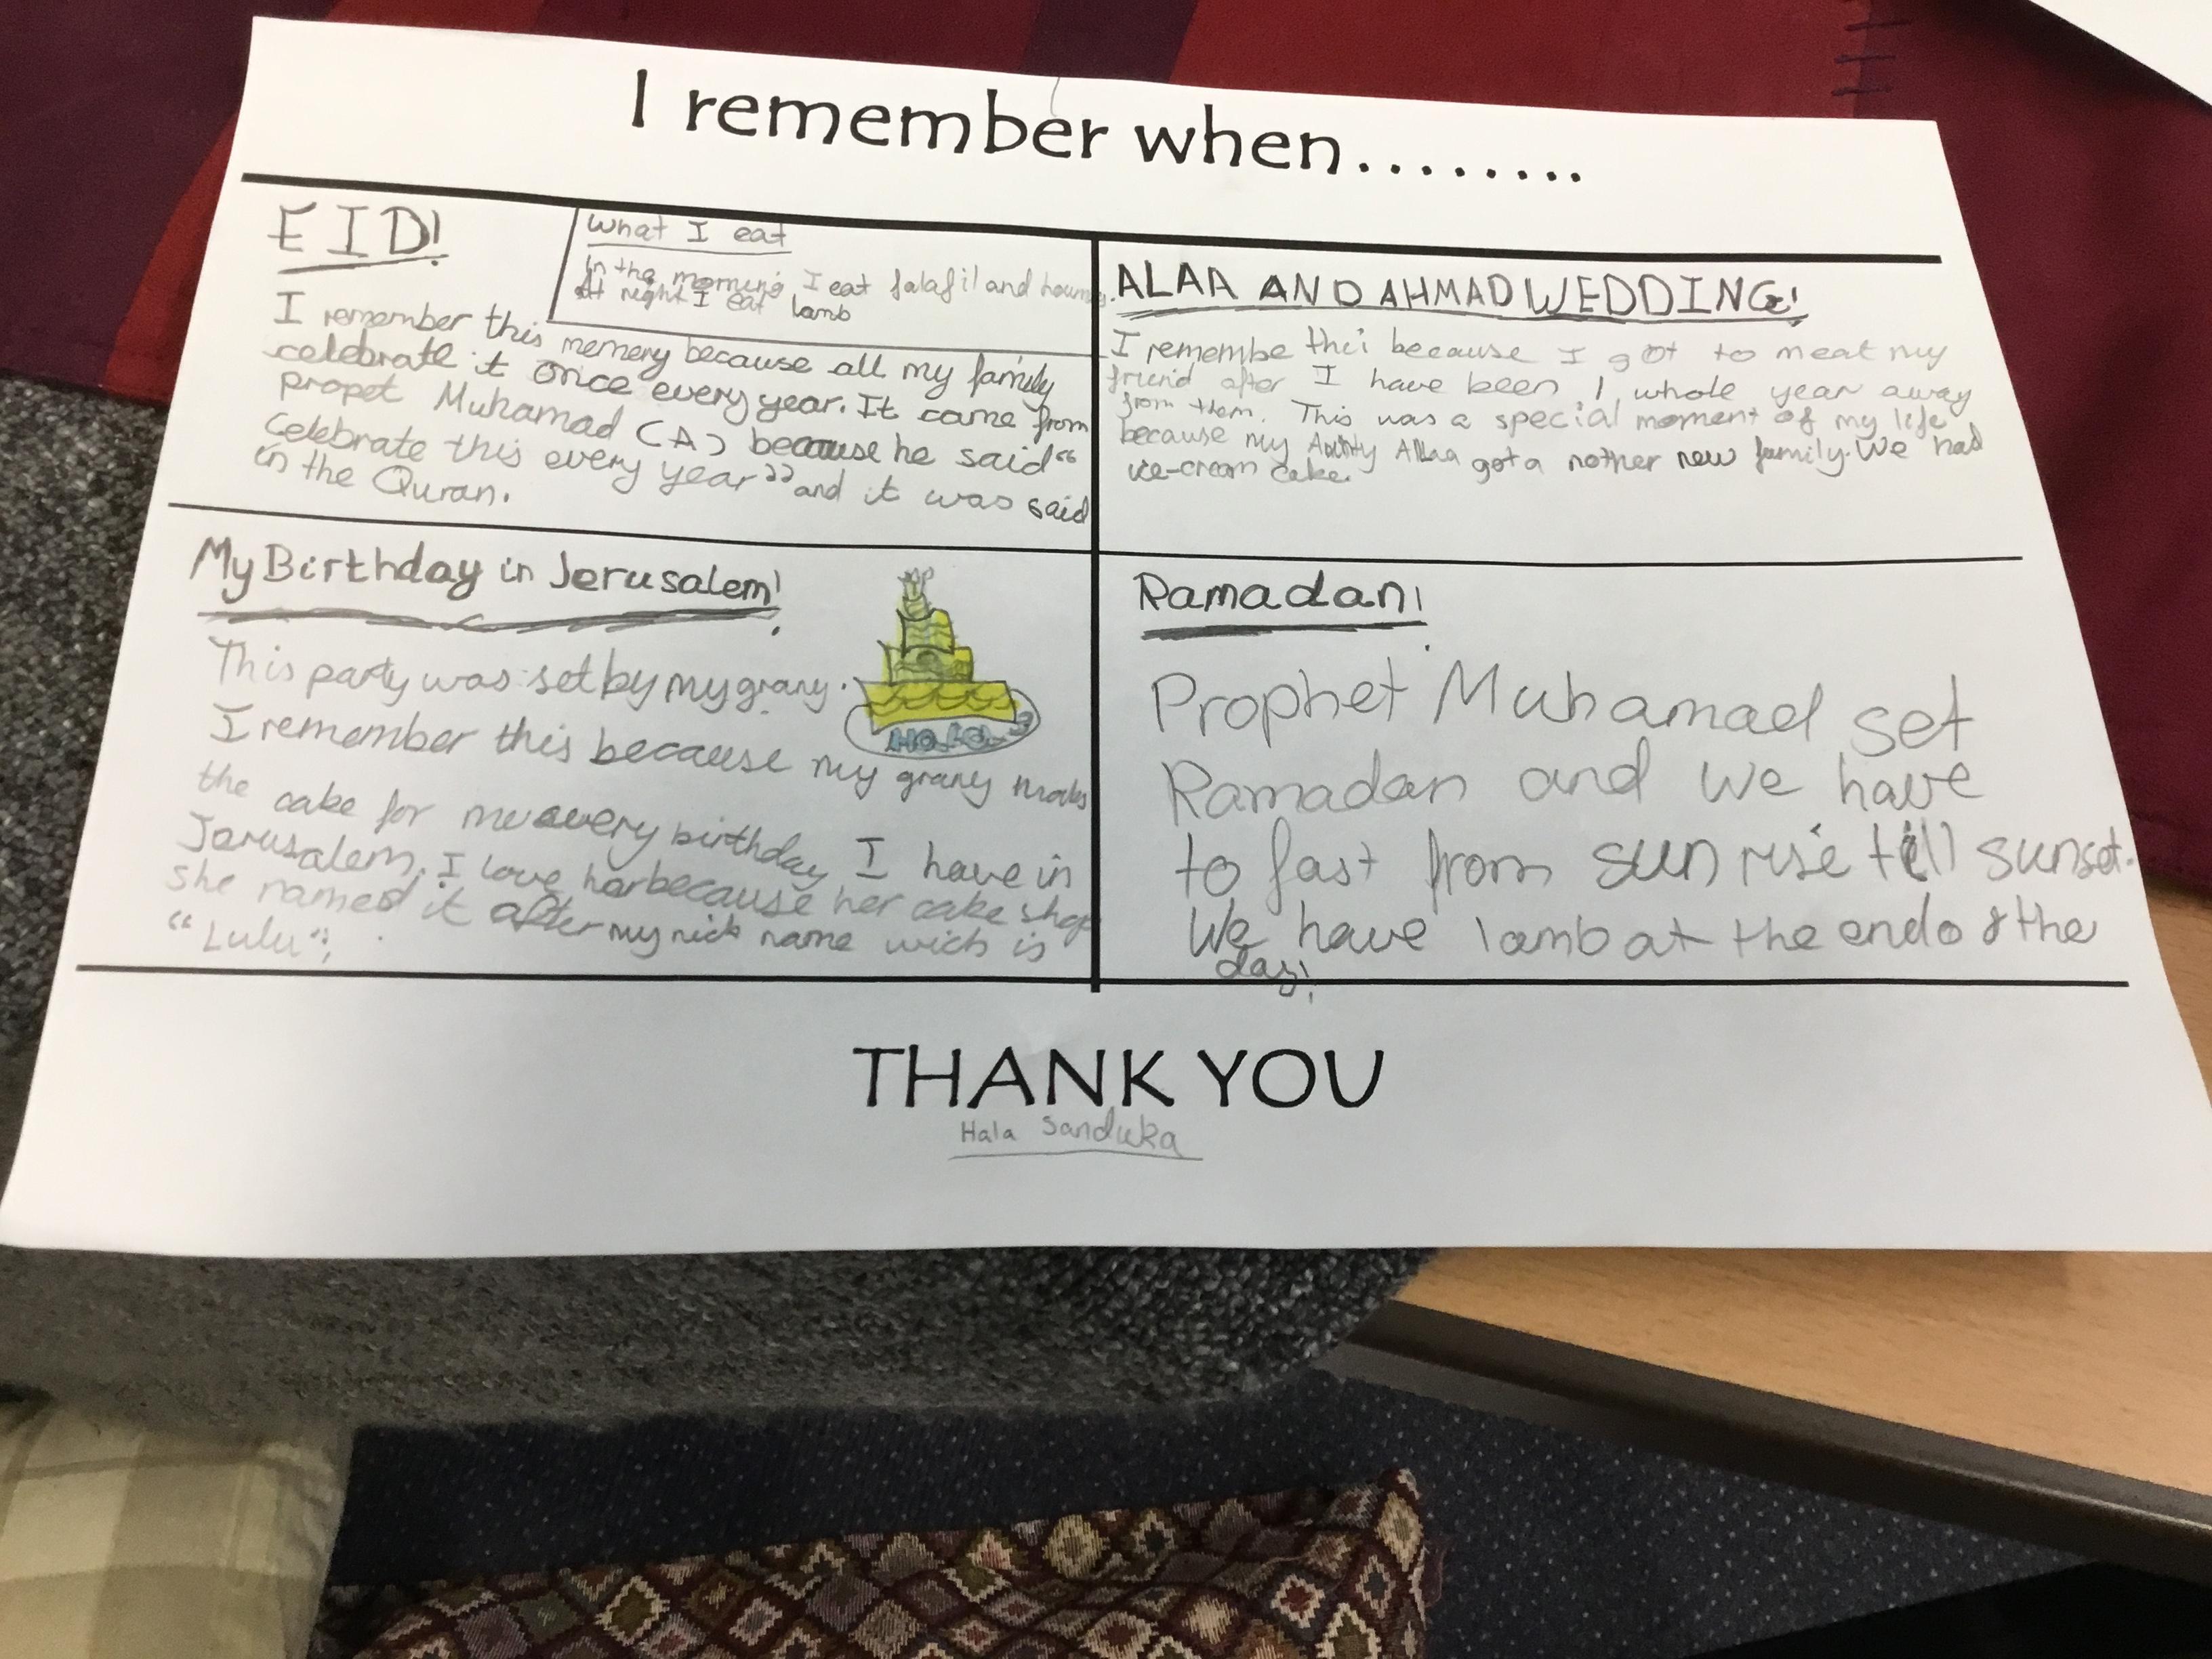 I remember when........
EID!
What I eat
In the morning I eat falafil and houmes.
At night I eat lamb
I remember this memery because all my family
celebrate it once every year. It came from
propet Muhamad (A) because he said “
Celebrate this every year” and it was said
in the Quran.
ALAA AND AHMAD WEDDING!
I remembe thei because I got to meat my
friend after I have been 1 whole year away
from them. This was a special moment of my life
because my Aunty Allaa got a nother new family. We had
ice-cream cake.
My Birthday in Jerusalem!
This party was set by my grany.
I remember this because my grany makes
the cake for me every birthday I have in
Jerusalem. I love her because her cake shop
she named it after my nick name wich is
“Lulu”;
Ramadan!
Prophet Muhamad set
Ramadan and we have
to fast from sun rise till sunset.
We have lamb at the end of the
day!
THANK YOU
Hala Sanduka